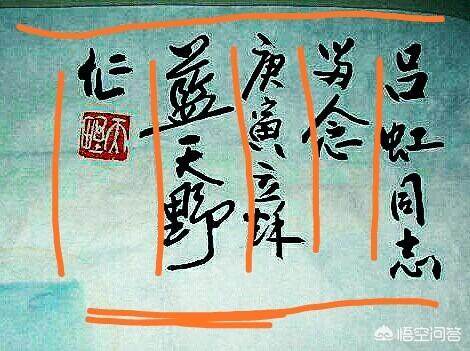 吕虹同志
留念
庚寅立秌
蓝天野
作
天野
悟空问答